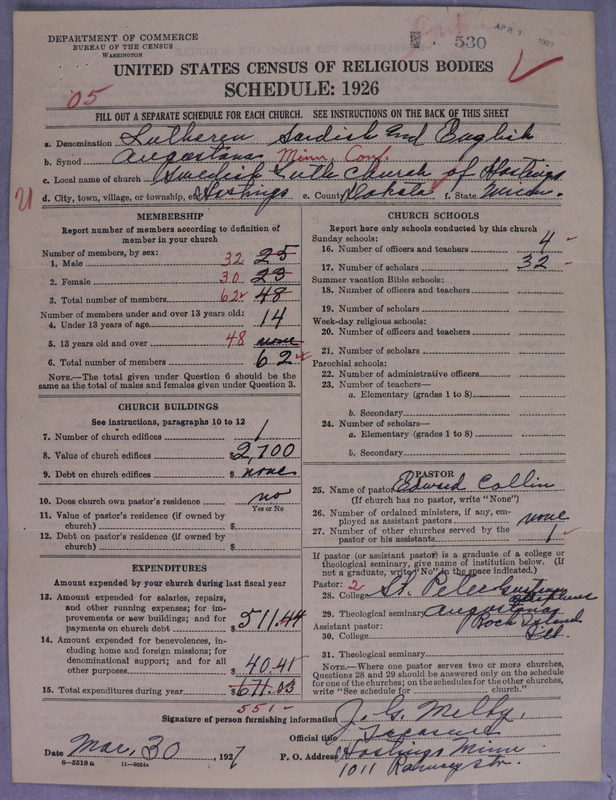 DEPARTMENT OF COMMERCE
BUREAU OF THE CENSUS
WASHINGTON
530
APR 1927
UNITED STATES CENSUS OF RELIGIOUS BODIES
SCHEDULE: 1926
05
FILL OUT A SEPARATE SCHEDULE FOR EACH CHURCH. SEE INSTRUCTIONS ON THE BACK OF THIS SHEET
a. Denomination Lutheren Swedish and English
b. Synod Augustana Minn. Conf.
c. Local name of church Swedish Luth Church of Hastings
d. City, town, village, or township, etc. Hastings e. County Dakota f. State Minn.
MEMBERSHIP
Report number of members according to definition of
member in your church
Number of members, by sex:
1. Male 32 25
2. Female 30 23
3. Total number of members 62 48
Number of members under and over 13 years old:
4. Under 13 years of age 14
5. 13 years old and over 48 none
6. Total number of members 62
NOTE.—The total given under Question 6 should be the
same as the total of males and females given under Question 3.
CHURCH BUILDINGS
See instructions, paragraphs 10 to 12
7. Number of church edifices 1
8. Value of church edifices $2,700
9. Debt on church edifices $ none
10. Does church own pastor's residence no
Yes or No
11. Value of pastor's residence (if owned by
church) $
12. Debt on pastor's residence (if owned by
church) $
EXPENDITURES
Amount expended by your church during last fiscal year
13. Amount expended for salaries, repairs,
and other running expenses; for im-
provements or new buildings; and for
payments on church debt $511.44
14. Amount expended for benevolences, in-
cluding home and foreign missions; for
denominational support; and for all
other purposes $40.41
15. Total expenditures during year 671.03
551 -
CHURCH SCHOOLS
Report here only schools conducted by this church
Sunday schools:
16. Number of officers and teachers 4
17. Number of scholars 32
Summer vacation Bible schools:
18. Number of officers and teachers
19. Number of scholars
Week-day religious schools:
20. Number of officers and teachers
21. Number of scholars
Parochial schools:
22. Number of administrative officers
23. Number of teachers—
a. Elementary (grades 1 to 8)
b. Secondary
24. Number of scholars—
a. Elementary (grades 1 to 8)
b. Secondary
PASTOR
25. Name of pastor Edward Collin
(If church has no pastor, write "None")
26. Number of ordained ministers, if any, em-
ployed as assistant pastors none
27. Number of other churches served by the
pastor or his assistants 1
If pastor (or assistant pastor) is a graduate of a college or
theological seminary, give name of institution below. (If
not a graduate, write "No" in the space indicated.)
Pastor: 2
28. College St. Peter Gustavus Adolphus
29. Theological seminary Augustana
Assistant pastor: Rock Island
30. College Ill.
31. Theological seminary
NOTE.—Where one pastor serves two or more churches,
Questions 28 and 29 should be answered only on the schedule
for one of the churches; on the schedules for the other churches,
write "See schedule for church."
Signature of person furnishing information J. G. Melby,
Official title Treasurer
Date Mar, 30, 1927 P. O. Address Hastings Minn
8—5518 a 11—9054 1011 Ramsey Str.